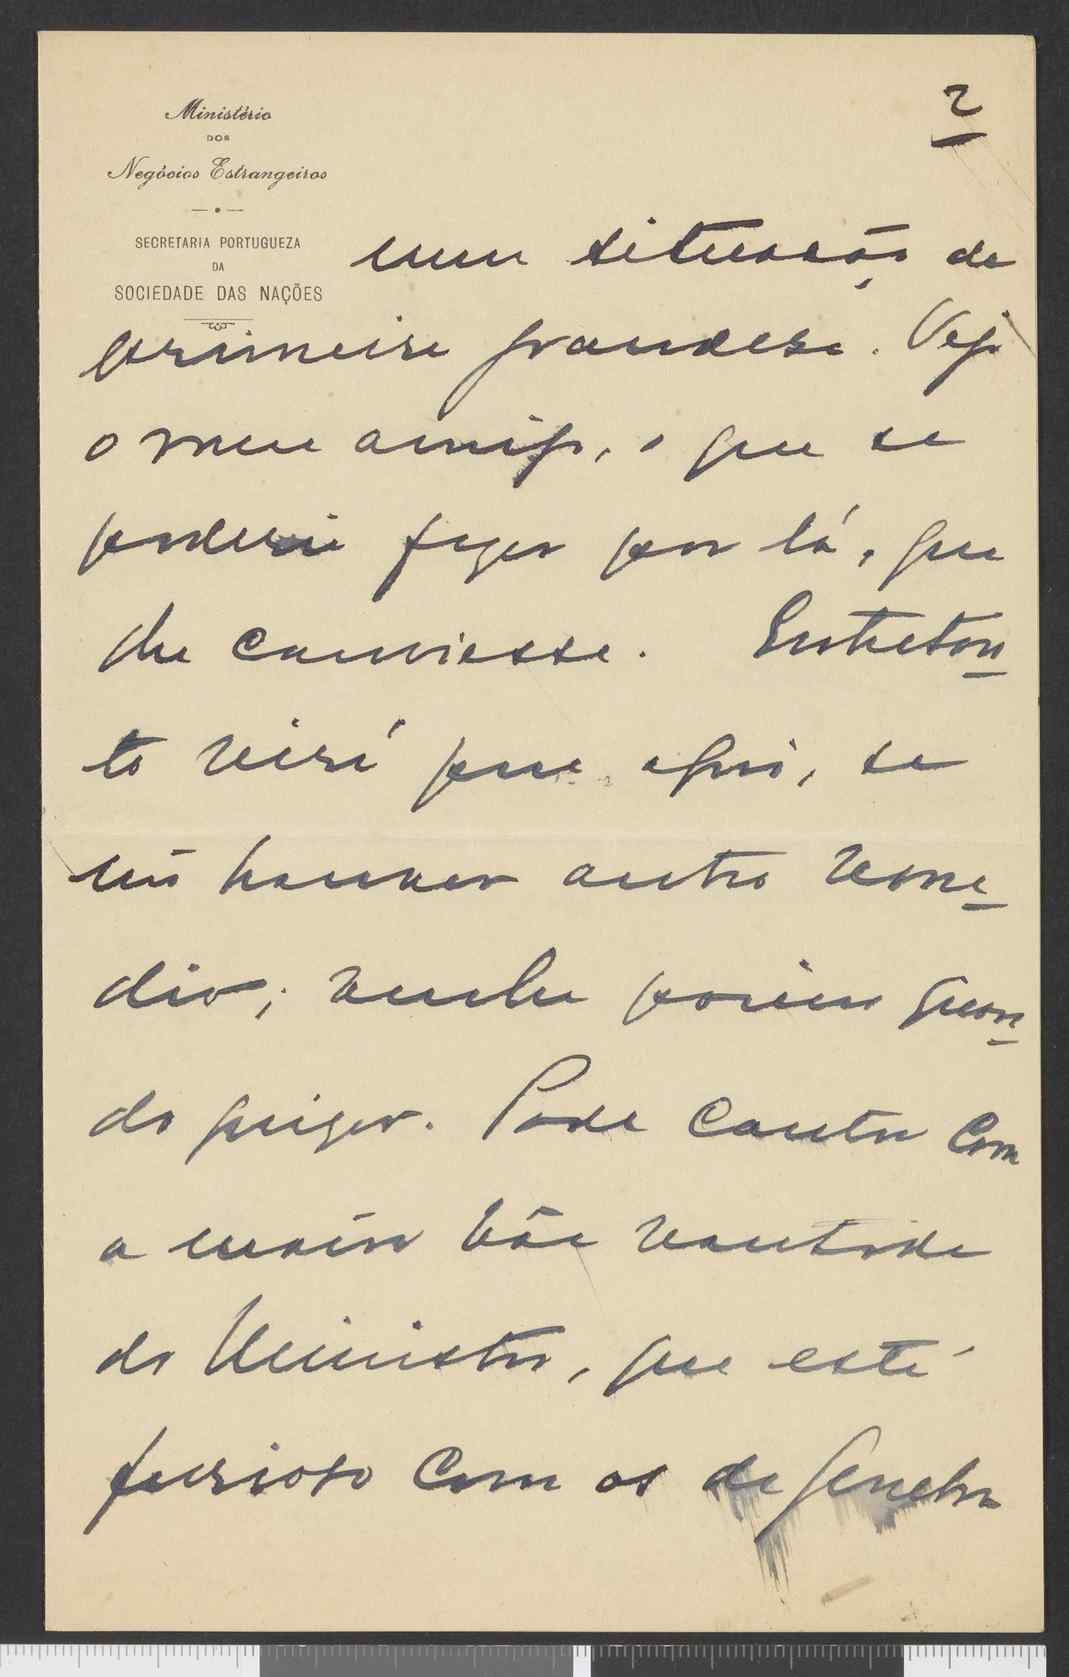 2
Ministério
DOS
Negócios Estrangeiros
SECRETARIA PORTUGUEZA
DA
SOCIEDADE DAS NAÇÕES
uma situação de
primeira grandeza. Veja
o meu amigo, o que se
poderia fazer por lá, que
lhe conviesse. Entretan
to virá para aqui, se
não houver outro reme
dio; venha porém quan
do quizer. Pode contar com
a maior bôa vontade
do Ministro, que está
furioso com os de Genebra